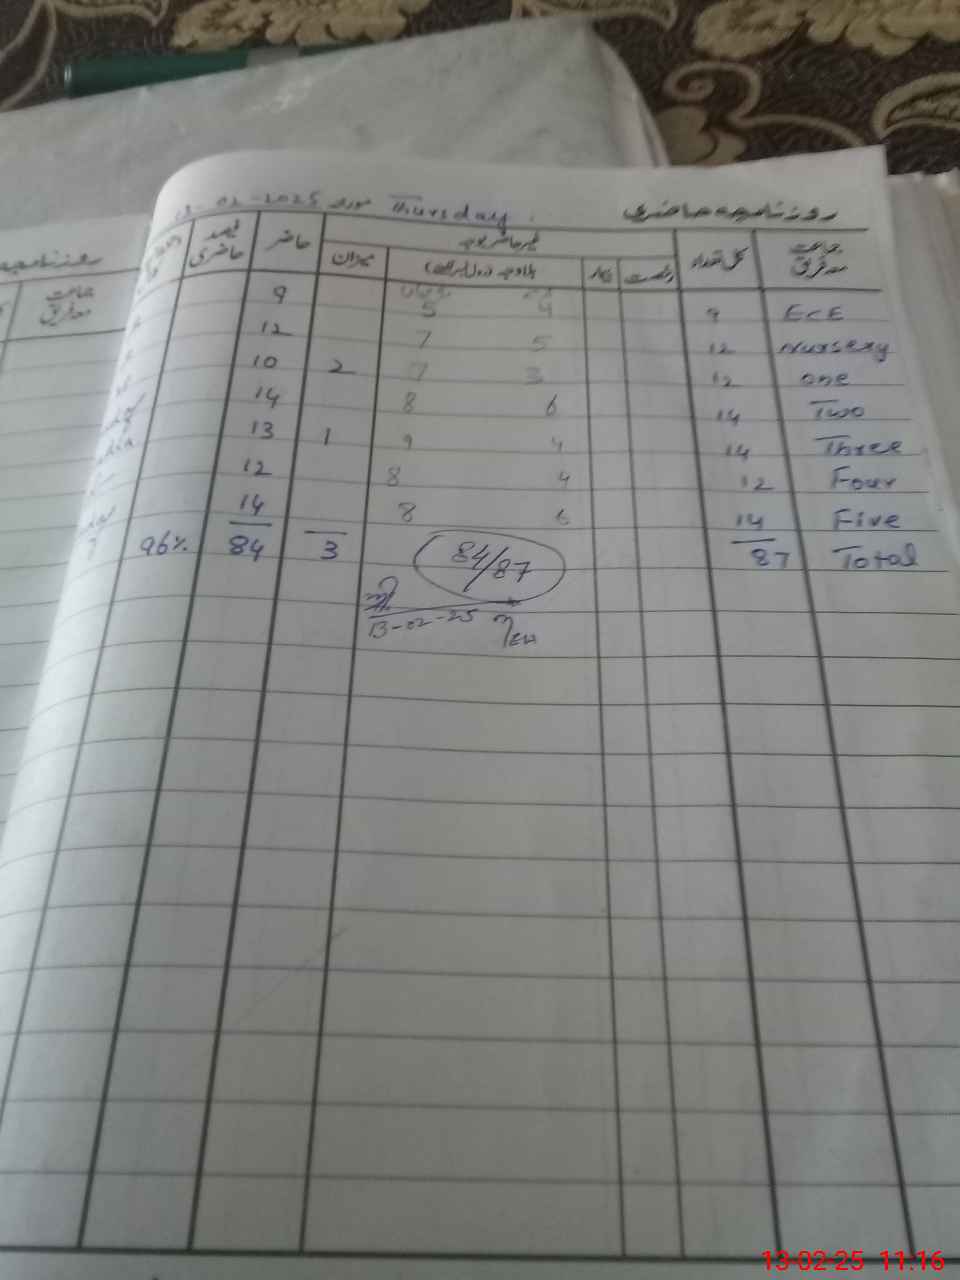 روزنامچہ حاضری Thursday مورخہ 13-02-2025
جماعت معہ فریق کل تعداد رخصت بیمار بلا وجہ میزان حاضر فیصد حاضری
غیر حاضر بوجہ
ECE 9 4 5 9
Nursery 12 5 7 12
one 12 3 7 2 10
Two 14 6 8 14
Three 14 4 9 1 13
Four 12 4 8 12
Five 14 6 8 14
Total 87 84/87 3 84 96%
13-02-25
روزنامچہ
جماعت معہ فریق
13-02-25 11:16